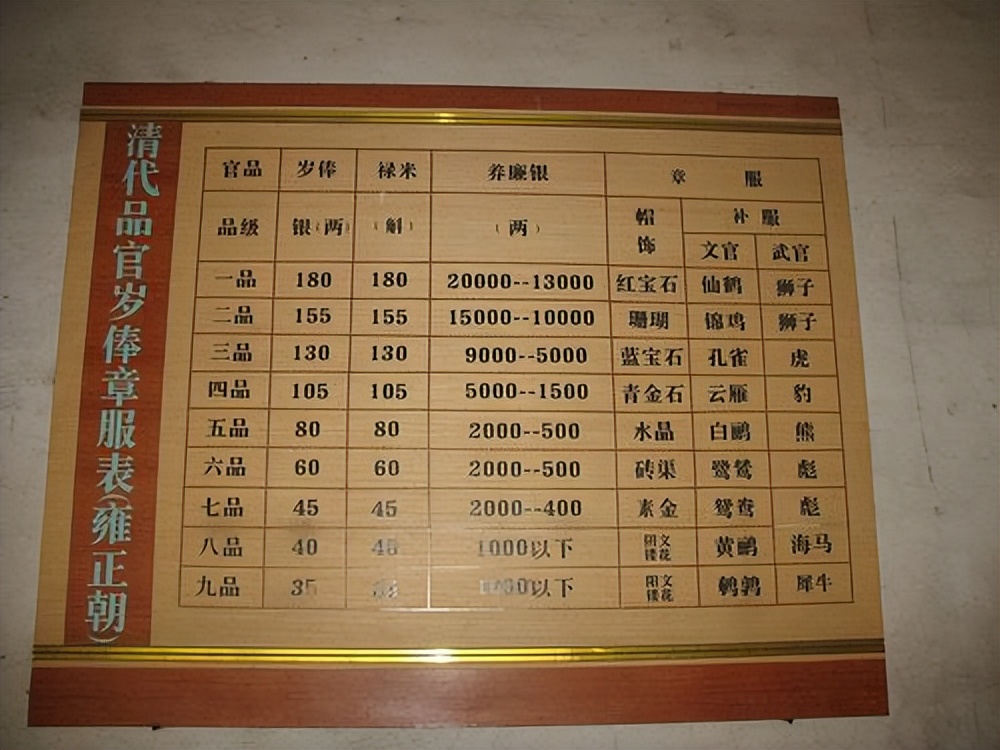 清代品官岁俸章服表(雍正朝)
官品 岁俸 禄米 养廉银 章 服
品级 银(两) (斛) (两) 帽饰 补 服
文官 武官
一品 180 180 20000--13000 红宝石 仙鹤 狮子
二品 155 155 15000--10000 珊瑚 锦鸡 狮子
三品 130 130 9000--5000 蓝宝石 孔雀 虎
四品 105 105 5000--1500 青金石 云雁 豹
五品 80 80 2000--500 水晶 白鹇 熊
六品 60 60 2000--500 砖渠 鹭鸶 彪
七品 45 45 2000--400 素金 鸳鸯 彪
八品 40 以下 阴文镂花 黄鹂 海马
九品 35 以下 阳文镂花 鹌鹑 犀牛